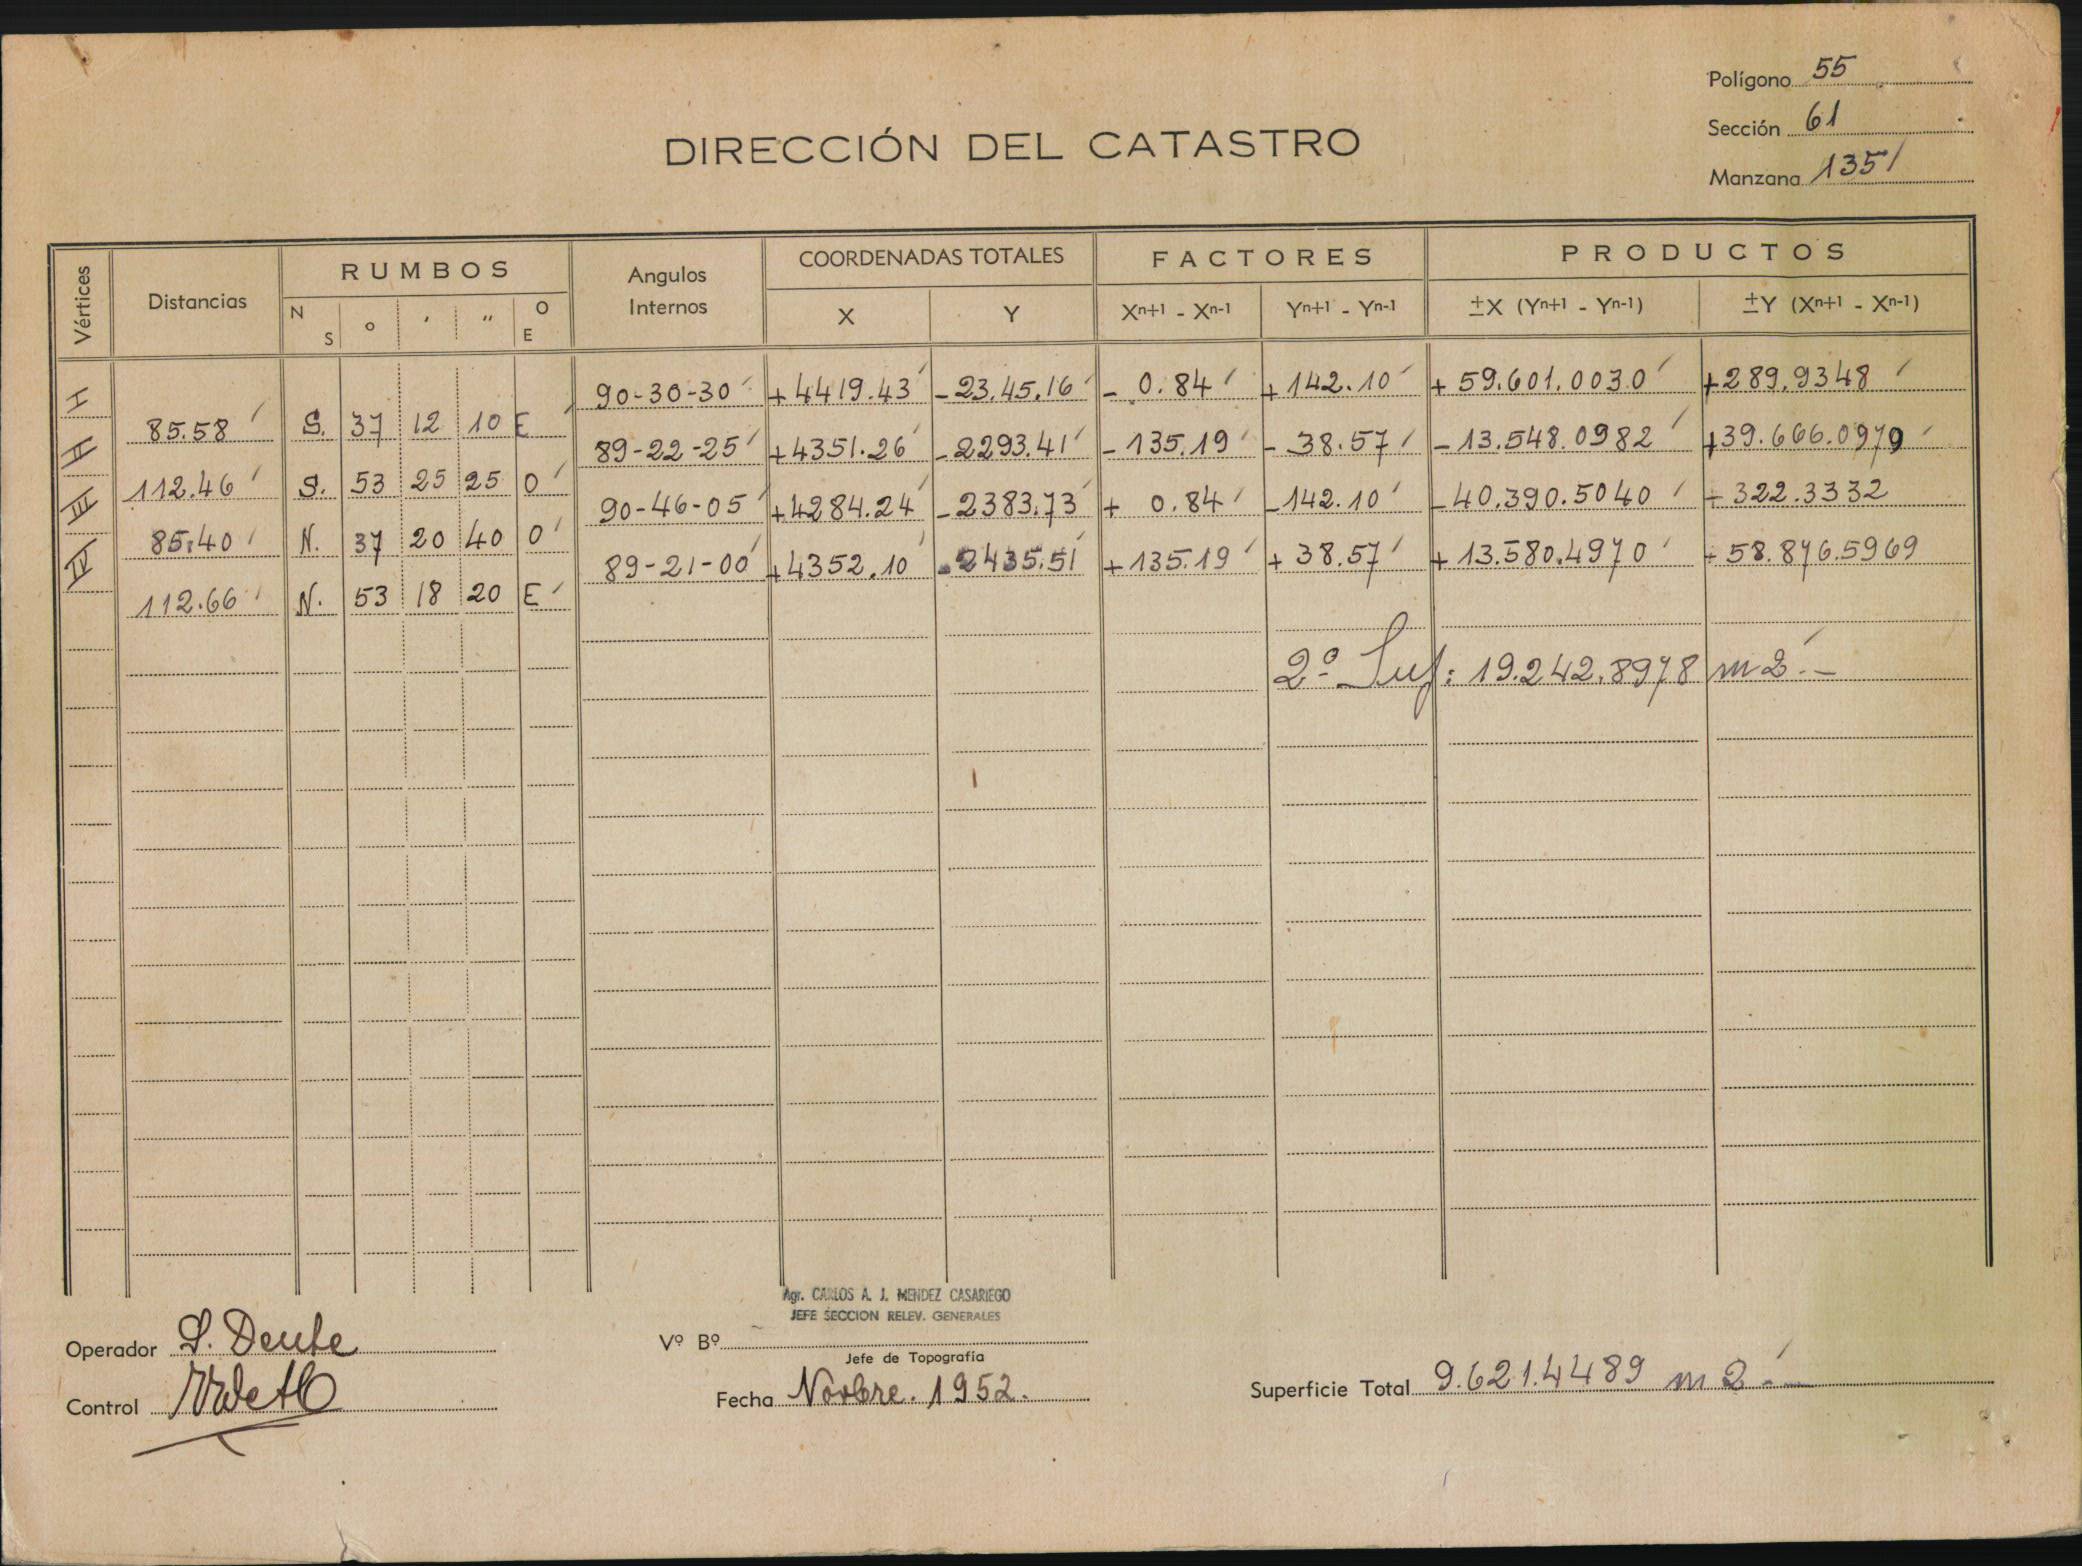 Polígono 55
Sección 61
Manzana 1351
DIRECCIÓN DEL CATASTRO
Vértices Distancias RUMBOS Angulos Internos COORDENADAS TOTALES FACTORES PRODUCTOS
N S o ' " O E X Y Xn+1 - Xn-1 Yn+1 - Yn-1 ±X (Yn+1 - Yn-1) ±Y (Xn+1 - Xn-1)
I 90-30-30 +4419.43 -23.45.16 - 0.84 +142.10 +59.601.0030 +289.9348
85.58 S. 37 12 10 E
II 89-22-25 +4351.26 -2293.41 -135.19 -38.57 -13.548.0982 +39.666.0979
112.46 S. 53 25 25 O
III 90-46-05 +4284.24 -2383.73 + 0.84 -142.10 -40.390.5040 + 322.3332
85.40 N. 37 20 40 O
IV 89-21-00 +4352.10 -2435.51 +135.19 + 38.57 +13.580.4970 + 58.876.5969
112.66 N. 53 18 20 E
2ª Sup: 19.242.8978 m2.-
Agr. CARLOS A. J. MENDEZ CASARIEGO
JEFE SECCION RELEV. GENERALES
Operador S. Deube
Vº Bº
Jefe de Topografía
Control
Fecha Novbre. 1952.
Superficie Total 9.621.4489 m2.-